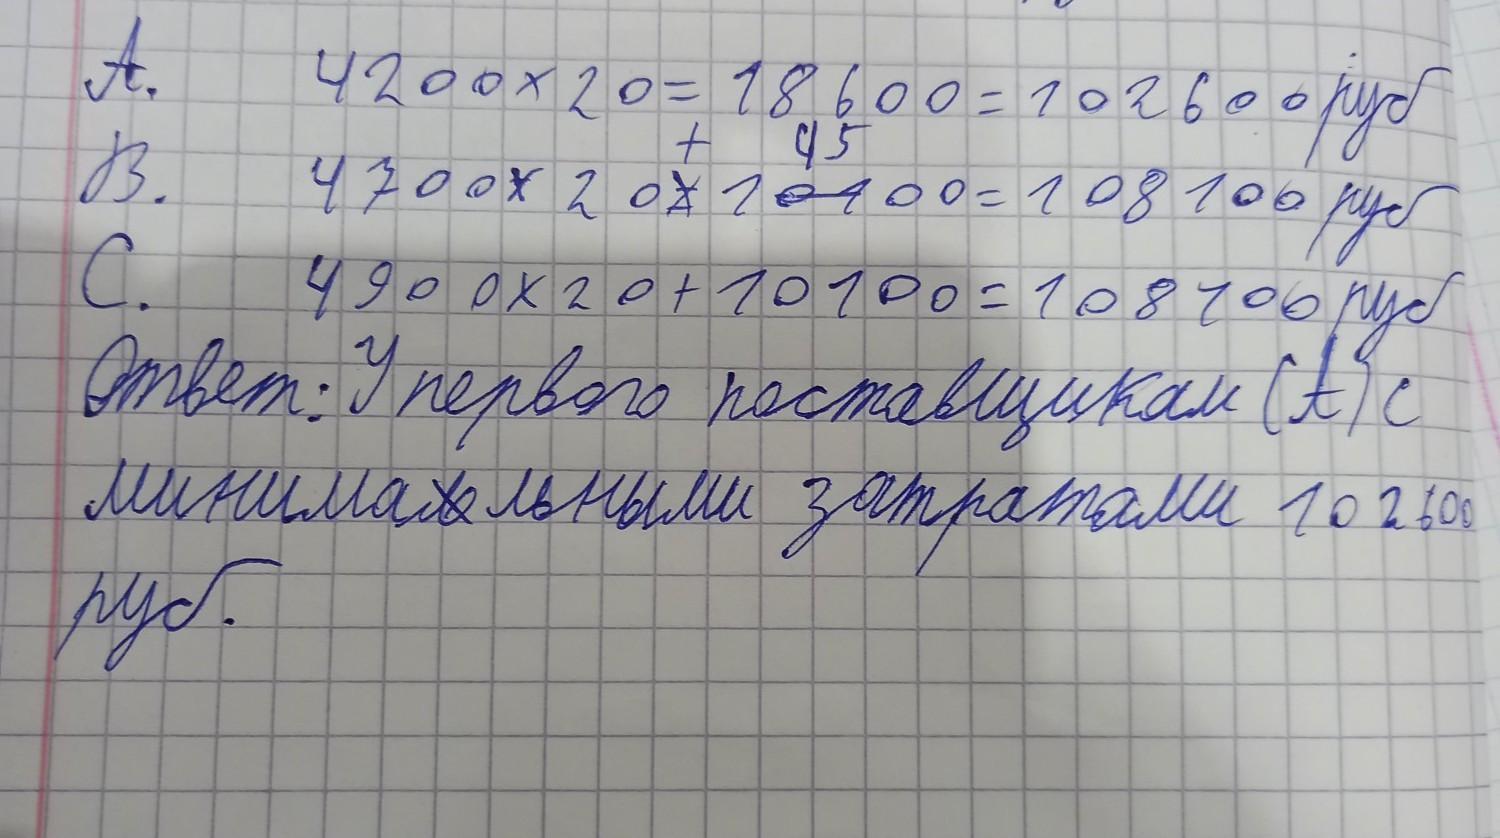 А. 4200×20=18600=102600руб
В. 4700×20+14500=108100руб
С. 4900×20+10100=108100руб
Ответ: У первого поставщикам (А) с
минимальными затратами 102600
руб.